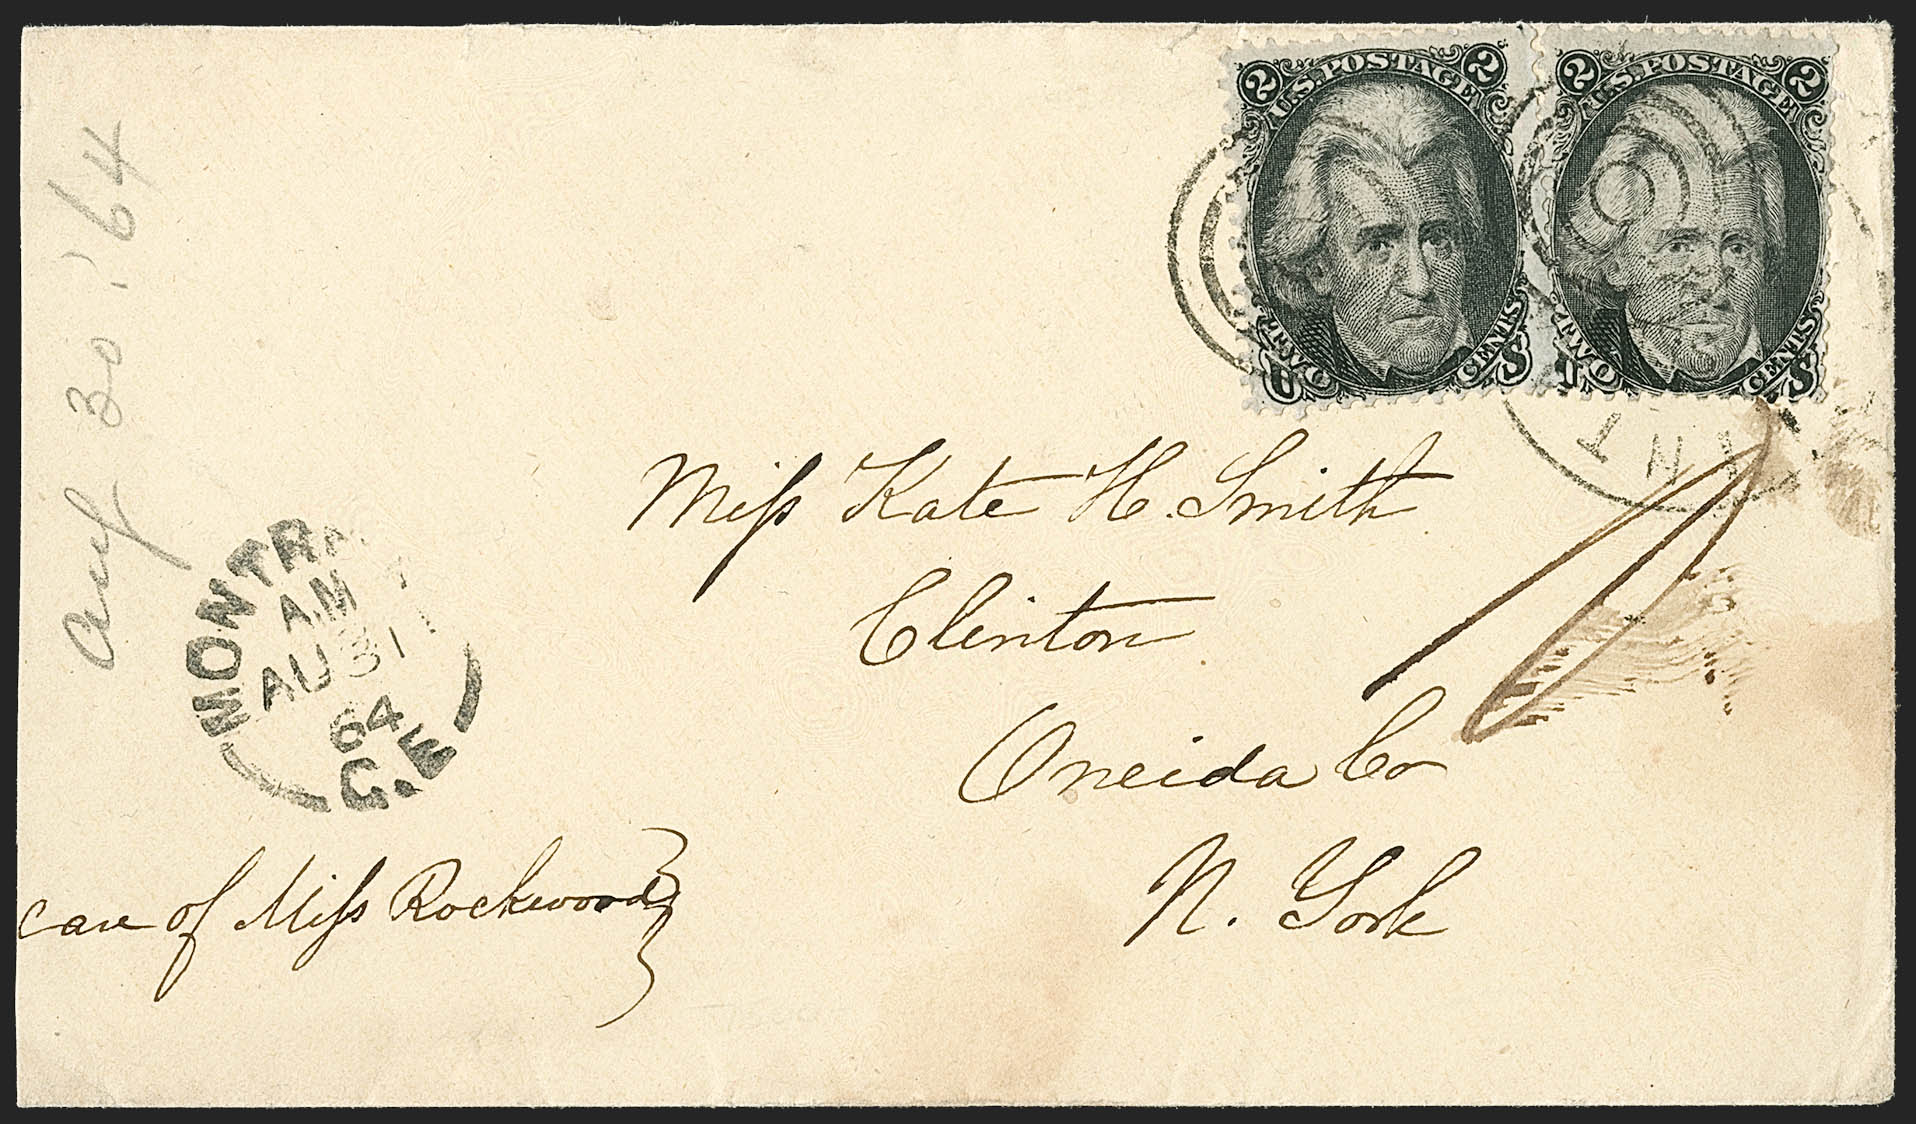 2 U.S. POSTAGE 2
TWO CENTS
U S
2 U.S. POSTAGE 2
TWO CENTS
U S
Aug 30. '64
Miss Kate H. Smith
Clinton
Oneida Co
N. York
MONTREA
AM
AU 31
64
C.E
care of Miss Rockwood